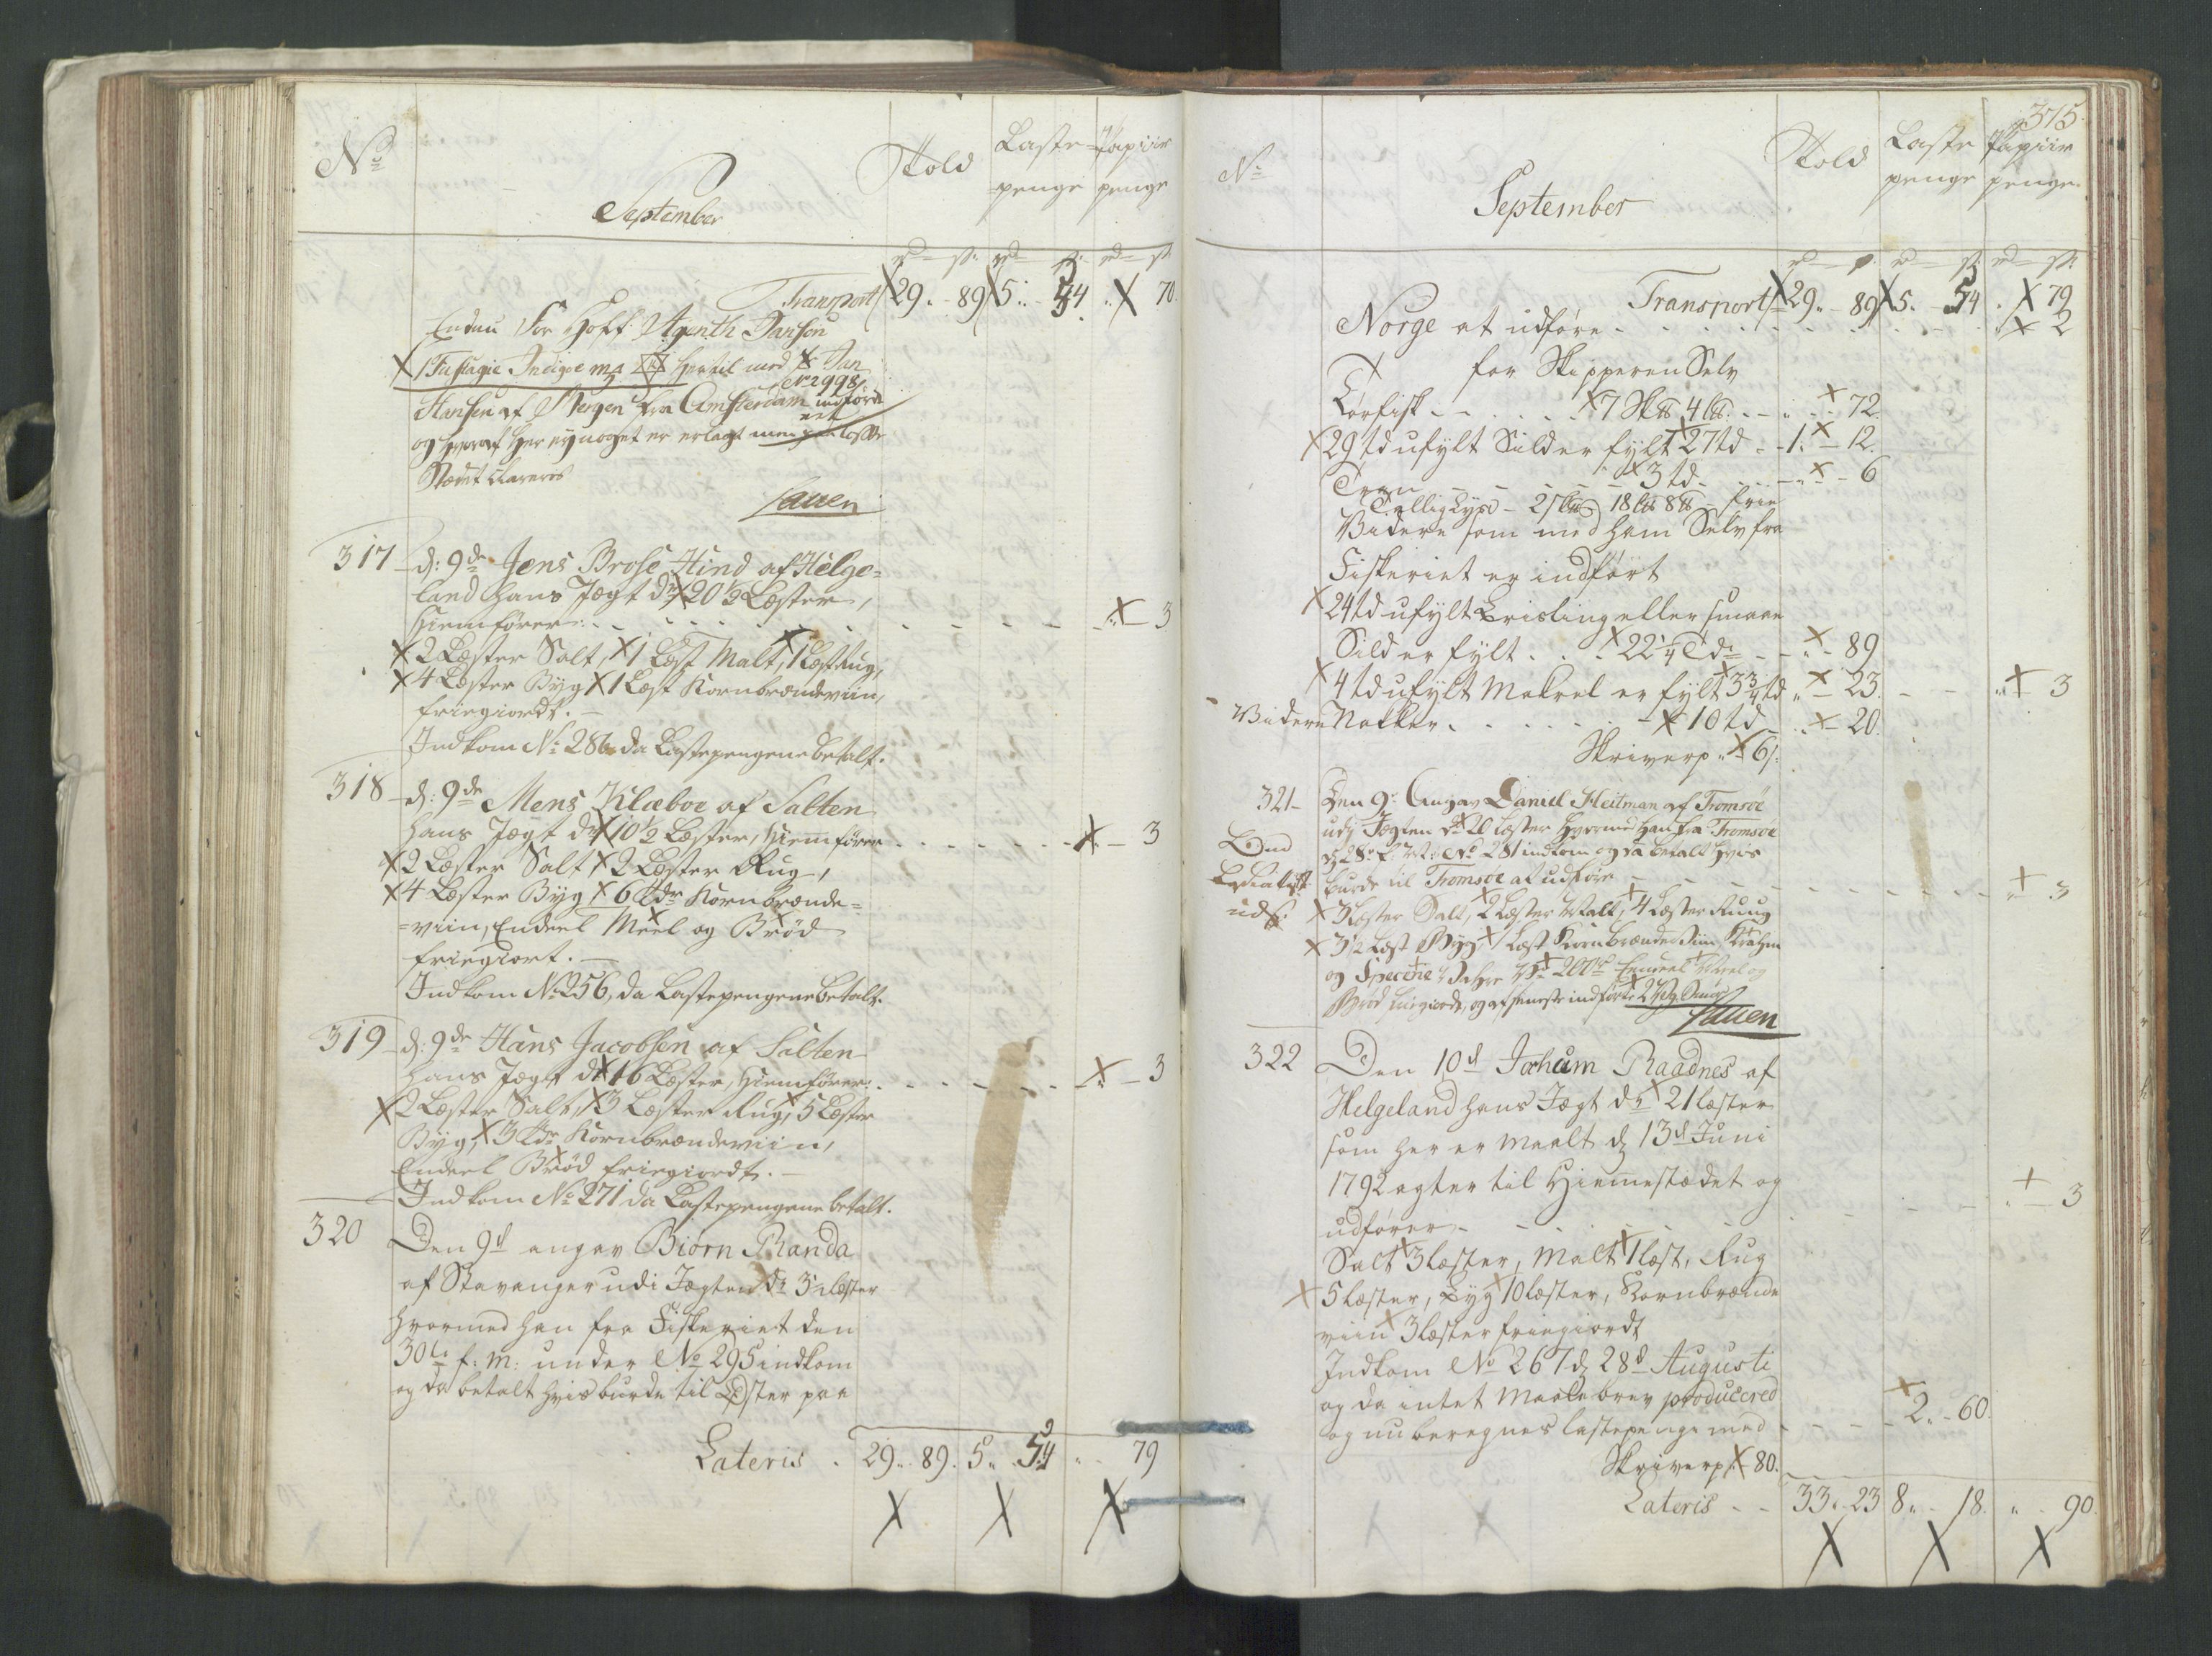 No
September
Told
Laste=
penge
Papiir
penge
rd s: rd s: rd s
Transport 29.. 89 5.. 54 .. 70.
Endnu For Hoff Agenth Jansen
1 Fustagie Indigoe mz hertil med Jan
No 2998
Hansen af Bergen fra Amsterdam indførde
og hvoraf her ey noget er erlagt men
Stædet Clareres
Sauen
317 d: 9de Jens Brose Hind af Helge=
land hans Jægt dr 20 1/2 Læster,
Hiemfører: .. 3
2 Læster Salt, 1 Læst Malt, 1 Læst Rug,
4 Læster Byg 1 Læst Kornbrændeviin,
friegiordt.
Indkom No 286 da Lastepengene betalt.
318 d: 9de Mens Klæboe af Salten
hans Jægt dr 10 1/2 Læster, Hiemfører .. 3
2 Læster Salt 2 Læster Rug,
4 Læster Byg 6 Tdr Kornbrænde=
=viin, Endeel Meel og Brød
friegiort.
Indkom No 256, da Lastepengene betalt.
319 d: 9de Hans Jacobsen af Salten
hans Jægt dr 16 Læster, Hiemfører: .. 3
2 Læster Salt, 3 Læster Rug, 5 Læster
Byg, 3 Tdr Kornbrændeviin,
Endeel Brød friegiordt.
Indkom No 271 da Lastepengene betalt.
320 Den 9d angav Biørn Randa
af Stavanger udi Jægten dr 3 1/2 læster
hvormed han fra Fiskeriet den
30te f: m: under No 295 indkom
og da betalt hvis burde til Øster paa
Lateris . 29.. 89. 5.. 54 .. 79
375.
No
September
Told
Laste
penge
Papiir
penge
rd s: rd s: rd s:
Transport 29.. 89 5. 54 . 79
Norge at udføre .. 2
for Skipperen Selv
Tørfisk 7 Sk℔ 4 l℔. .. 72.
29 td ufylt Sild er fylt 27 td 1. 12.
Tran 3 td. .. 6
Tællig Lyse 18 l℔ 8 ℔ frie
Videre som med ham Selv fra
Fiskeriet er indført
24 td ufylt Brisling eller smaae
Sild er fylt . . 22 1/4 Tdr .. 89
4 td ufylt Makrel er fylt 3 3/4 td .. 23. .. 3
Videre Nakker. 10 td .. 20.
Skriverp .. 6/:
321 Den 9: Angav Daniel Heitman af Tromsøe
udj Jægten dr 20 Læster hvormed han fra Tromsøe
d 28de f. M. No 281 indkom og da betalt hvis
burde til Tromsøe at udføre .. 3
3 Læster Salt, 2 Læster Malt, 4 Læster Ruug
3 1/2 Læst Byg 1 Læst Kornbrændeviin
og Specerie Endeel Meel og
Brød friegiordt, og af seneste indførte 2
Sauen
322 Den 10d Jochum Raadnes af
Helgeland hans Jægt dr 21 læster
som her er maalt d 13d Juni
1792 agter til Hiemmestædet og
udfører .. 3
Salt 3 læster, Malt 1 læst, Rug
5 læster, Byg 10 læster, Kornbrænde
viin 3 læster friegiordt
Indkom No 267 d 28d Augusti
og da intet Maalebrev producered
og nu beregnes lastepenge med 2.. 60.
Skriverp 80.
Lateris 33. 23 8.. 18. .. 90.